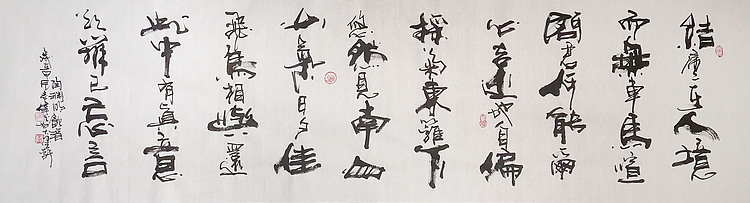 結廬在人境
而無車馬喧
問君何能爾
心遠地自偏
採菊東籬下
悠然見南山
山氣日夕佳
飛鳥相與還
此中有真意
欲辨已忘言
陶淵明飲酒